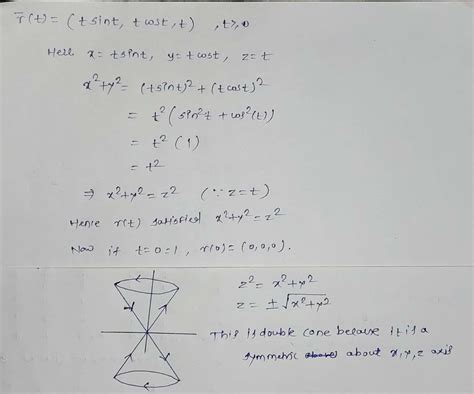 r̄(t) = (t sint, t cost, t) , t≥0
Hell x = t sint, y = t cost, z = t
x²+y² = (t sint)² + (t cost)²
= t² (sin²t + cos²(t))
= t² (1)
= t²
⇒ x²+y² = z² (∵ z = t)
Hence r(t) satisfied x²+y² = z²
Now if t=0=1, r(0) = (0,0,0).
z² = x²+y²
z = ±√x²+y²
This is double cone because it is a
symmetric about x, y, z axis